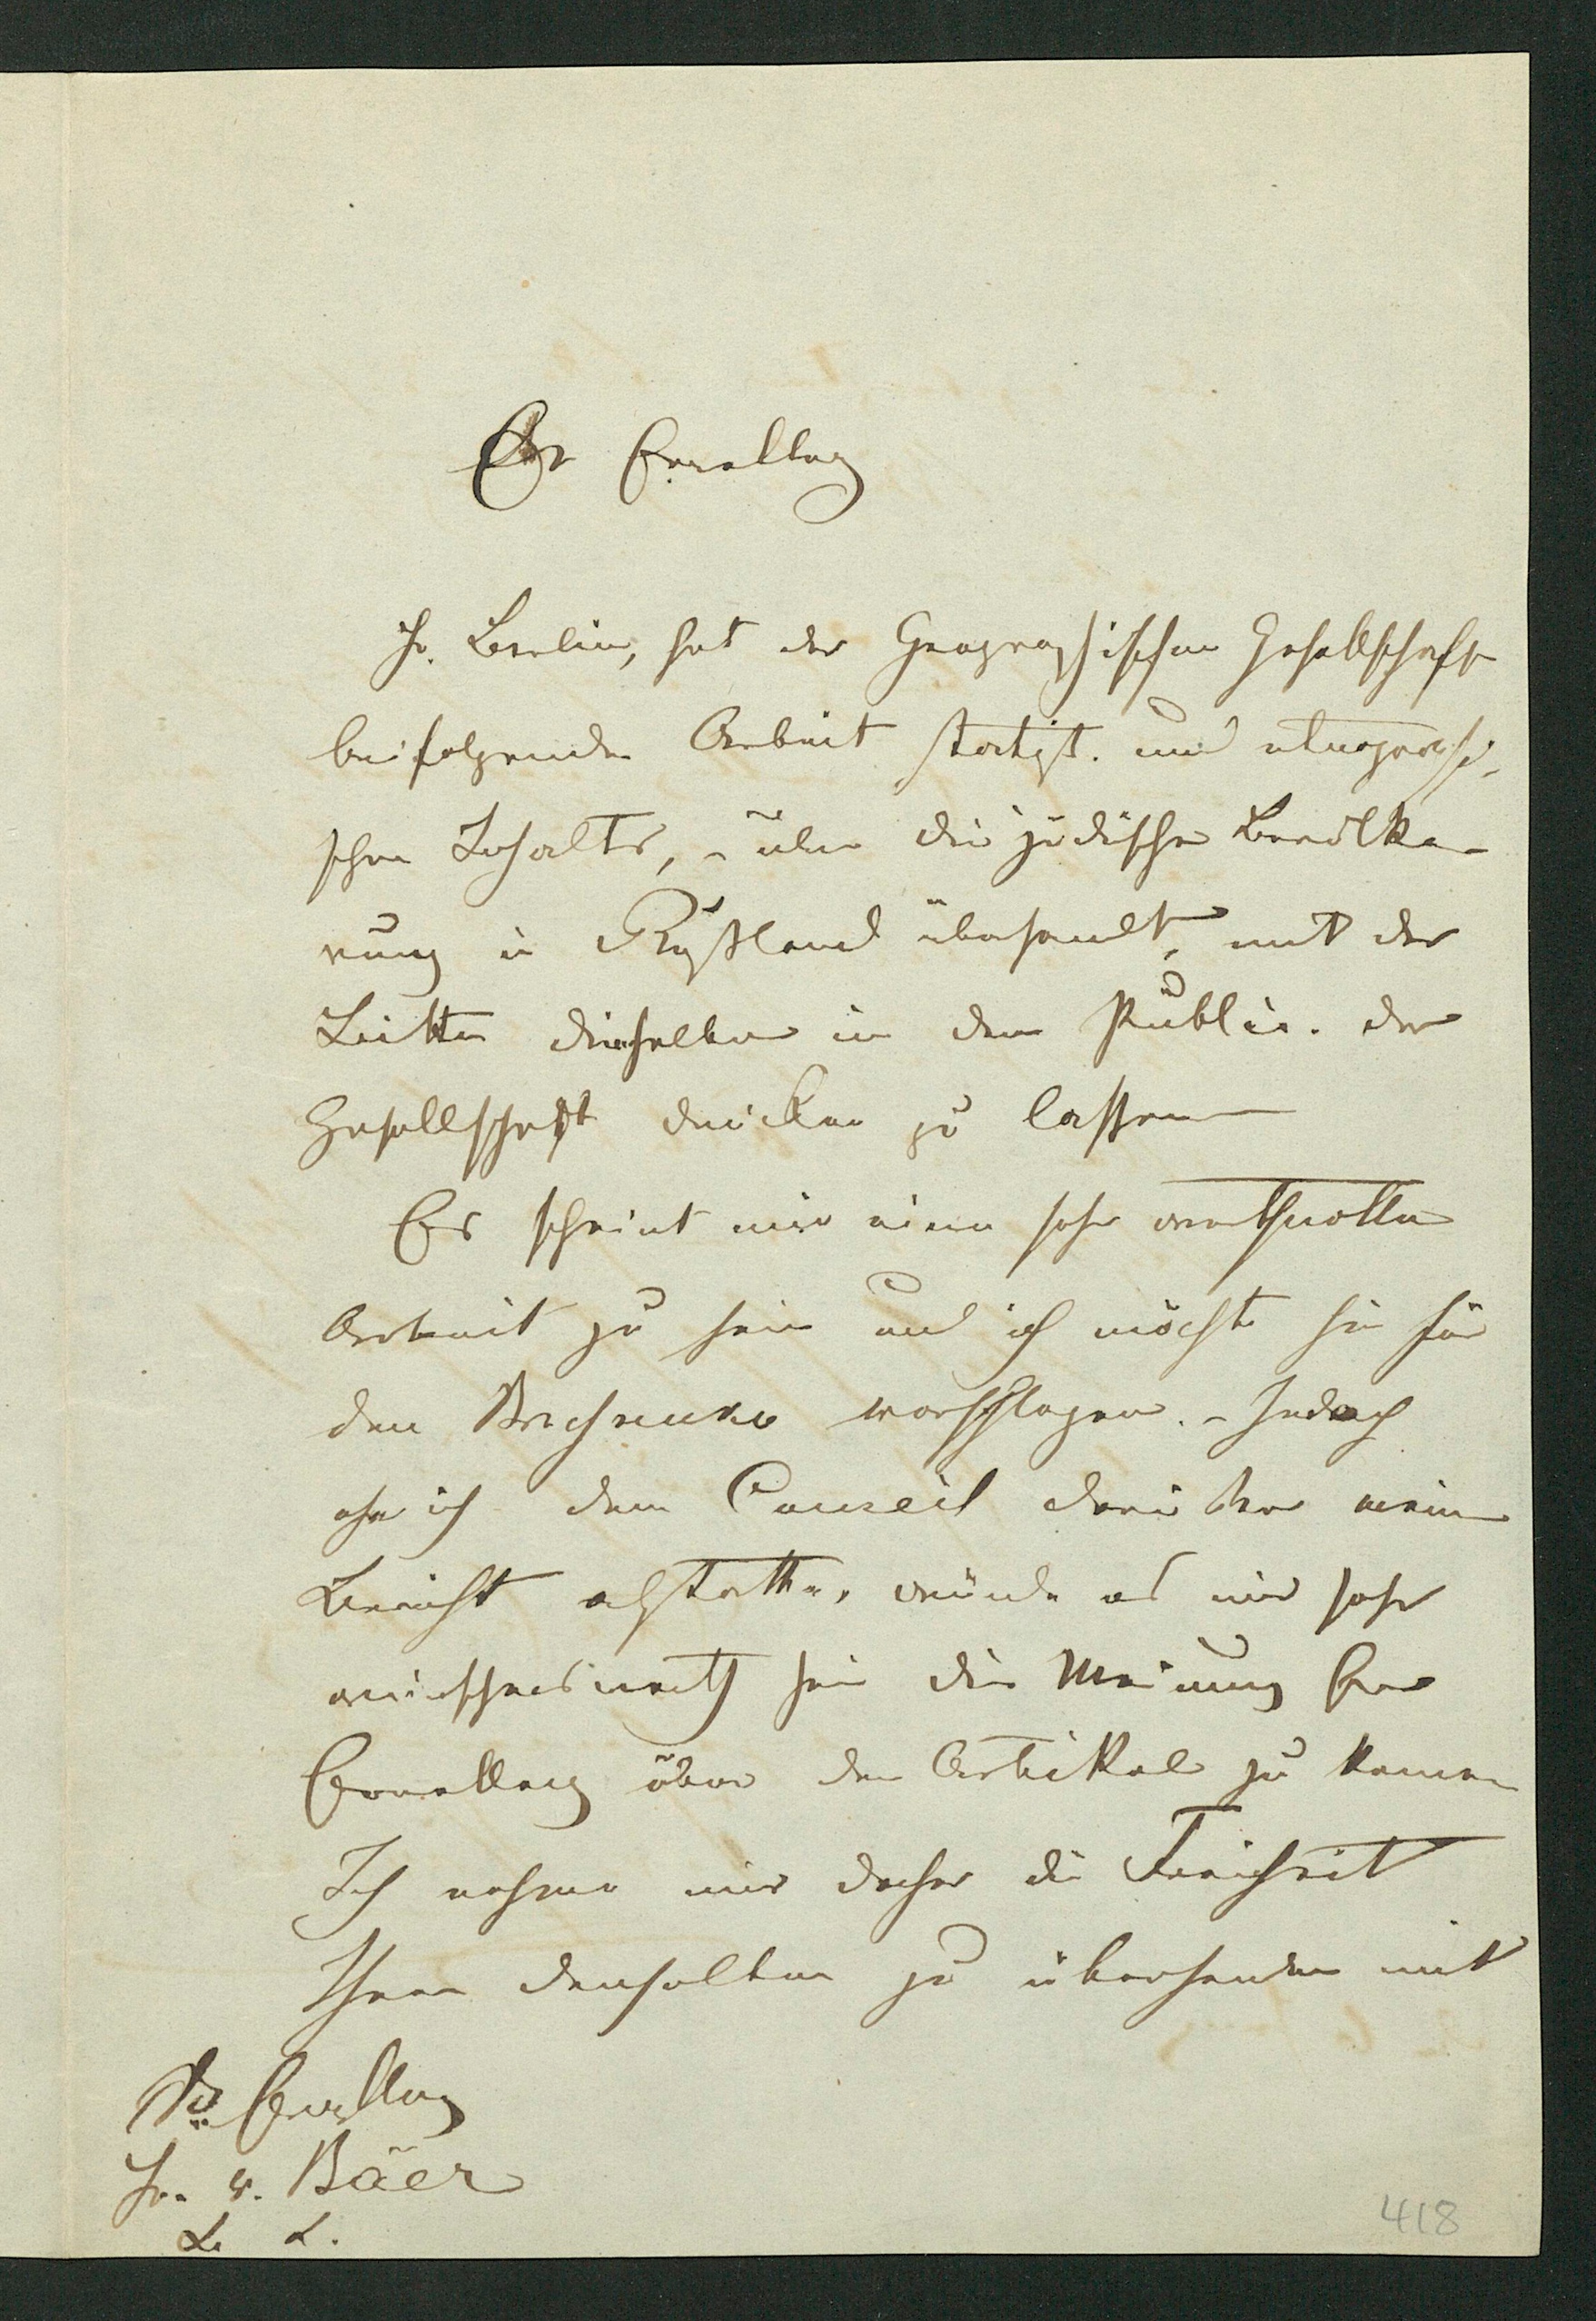 Ew Excellenz
Hr. Berlin, hat der Geographischen Gesellschaft
beifolgende Arbeit statist. und etnographi-
schen Inhalts, – über die jüdische Bevölke-
rung in Rußland übersandt, mit der
Bitte dieselbe in den Public. der
Gesellschaft drucken zu lassen
Es scheint mir eine sehr werthvolle
Arbeit zu sein und ich möchte sie für
den vorschlagen. – Jedoch
ehe ich dem Conseil darüber meinen
Bericht abstatte, würde es mir sehr
wünschenswerth sein die Meinung Ewr
Excellenz über den Artikel zu kennen
Ich nehme mir daher die Freiheit
Ihnen denselben zu übersenden mit
Sr Excellenz
Hr. v. Bäer
418